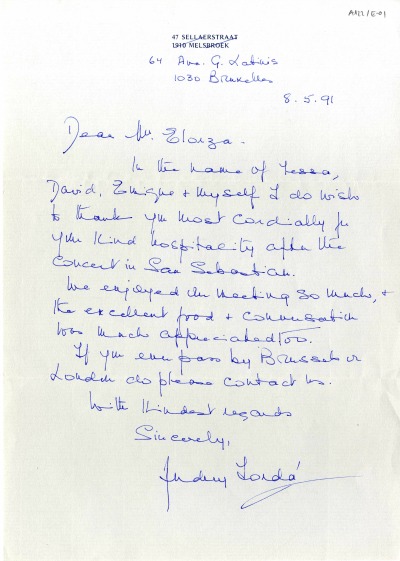 A112/E-01
47 SELLAERSTRAAT
1910 MELSBROEK
64 Ave. G. Latinis
1030 Bruxelles
8.5.91
Dear Mr. Elorza.
In the name of Tessa,
David, Enrique + myself I do wish
to thank you most cordially for
your kind hospitality after the
concert in San Sebastian.
We enjoyed our meeting so much, +
the excellent food + conversation
was much appreciated too.
If you ever pass by Brussels or
London do please contact us.
With kindest regards
Sincerely,